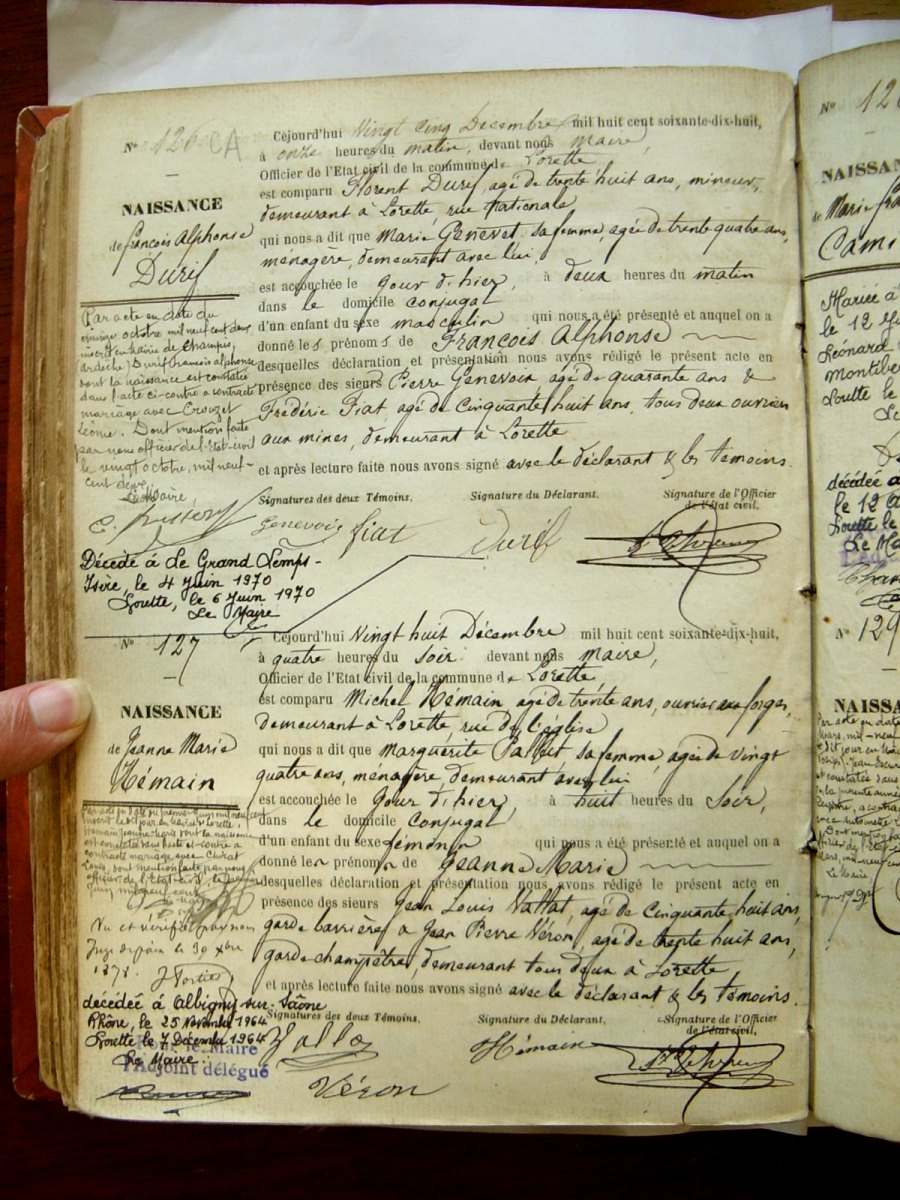 N° 126 CA
NAISSANCE
de François Alphonse
Durif
Par acte en date du
octobre mil neuf cent deux
inscrit en mairie de Champis,
ardèche, Durif François alphonse
dont la naissance est constatée
dans l'acte ci-contre a contracté
mariage avec Crouzet
Léonie. Dont mention faite
par nous officier de l'Etat-civil
le vingt octobre, mil neuf-
cent deux.
Le Maire,
Décédé à Le Grand Lemps-
Isère, le 4 Juin 1970
Lorette, le 6 Juin 1970
Le Maire
Cejourd'hui Vingt cinq Décembre mil huit cent soixante-dix-huit,
à onze heures du matin, devant nous Maire,
Officier de l'Etat civil de la commune de Lorette
est comparu Florent Durif, agé de trente huit ans, mineur,
demeurant à Lorette, rue Nationale
qui nous a dit que Marie Genevet, sa femme, agée de trente quatre ans,
ménagère, demeurant avec lui,
est accouchée le jour d'hier, à deux heures du matin
dans le domicile conjugal
d'un enfant du sexe masculin qui nous a été présenté et auquel on a
donné les prénoms de François Alphonse
desquelles déclaration et présentation nous avons rédigé le présent acte en
présence des sieurs Pierre Genevois agé de quarante ans &
Frédéric Fiat agé de Cinquante huit ans, tous deux ouvriers
aux mines, demeurant à Lorette
et après lecture faite nous avons signé avec le déclarant & les témoins.
Signatures des deux Témoins. Signature du Déclarant. Signature de l'Officier
de l'état civil,
Genevois Fiat Durif
N° 127
NAISSANCE
de Jeanne Marie
Hémain
Par acte en date du premier Juin mil neuf cent
inscrit le dit jour en Mairie Lorette,
hemain Jeanne Marie dont la naissance
est constatée dans l'acte ci-contre a
contracté mariage avec
Louis, dont mention faite par nous
officier de l'Etat-civil, le
Juin mil neuf cent
Vu et vérifié par nous
Juge de paix le 30 xbre
1878.
décédée à Albigny-sur-Saône
Rhône, le 25 Novembre 1964
Lorette le 7 Décembre 1964
Le Maire:
Pour le Maire
l'Adjoint délégué
Cejourd'hui Vingt huit Décembre mil huit cent soixante-dix-huit,
à quatre heures du soir devant nous maire,
Officier de l'Etat civil de la commune de Lorette
est comparu Michel Hémain, agé de trente ans, ouvrier aux forges,
demeurant à Lorette, rue de l'église
qui nous a dit que Marguerite sa femme, agée de vingt
quatre ans, ménagère demeurant avec lui
est accouchée le jour d'hier, à huit heures du Soir,
dans le domicile conjugal
d'un enfant du sexe féminin qui nous a été présenté et auquel on a
donné le prénom de Jeanne Marie
desquelles déclaration et présentation nous avons rédigé le présent acte en
présence des sieurs Jean Louis Vallat, agé de Cinquante huit ans,
garde barrière, & Jean Pierre Véron, agé de trente huit ans,
garde champêtre, demeurant tous deux à Lorette
et après lecture faite nous avons signé avec le déclarant & les témoins.
Signatures des deux Témoins. Signature du Déclarant. Signature de l'Officier
de l'état civil,
Hémain
Véron
N° 12
NAISSANC
de Marie
Mariée à
le 12
Léonard
Lorette le
décédée a
le 12
Lorette le
Le Ma
N° 129
NAISSA